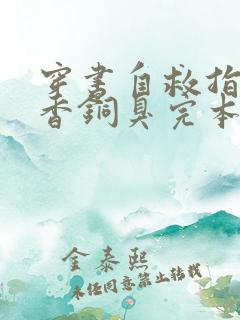 穿书自救指
香銅臭完本
金泰熙
未经同意禁止转载